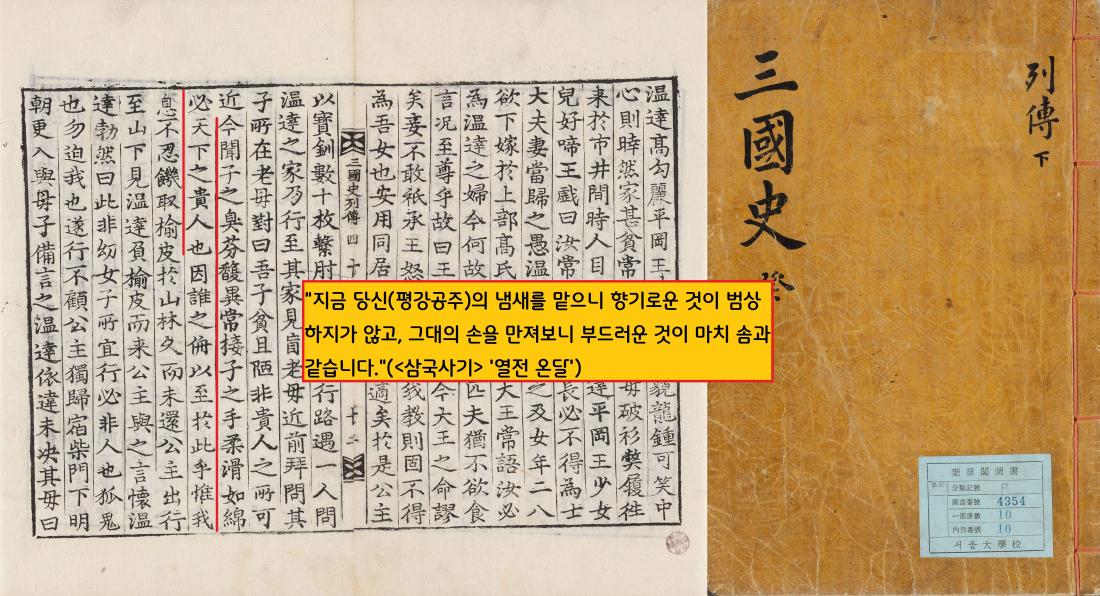 温達高勾麗平岡王
貌龍鍾可笑中
心則然家甚貧常
母破衫弊履徃
来於市井間時人目
達平岡王少女
兒好啼王戲曰汝常
長必不得為士
大夫妻當歸之愚温
之及女年二八
欲下嫁於上部髙氏
大王常語汝必
為温達之婦今何故
匹夫猶不欲食
言况至尊乎故曰王
今大王之命謬
矣妾不敢祇承王怒
我教則固不得
為吾女也安用同居
適矣於是公主
三國史列傳四十
十二
以寶釧數十枚繫肘
行路遇一人問
温達之家乃行至其家見盲老母近前拜問其
子所在老母對曰吾子貧且陋非貴人之所可
近今聞子之臭芬馥異常接子之手柔滑如綿
必天下之貴人也因誰之侜以至於此乎惟我
息不忍饑取榆皮扵山林久而未還公主出行
至山下見温達負榆皮而来公主與之言懷温
達勃然曰此非幼女子所宜行必非人也狐鬼
也勿迫我也遂行不顧公主獨歸宿柴門下明
朝更入與母子備言之温達依違未决其母曰
"지금 당신(평강공주)의 냄새를 맡으니 향기로운 것이 범상
하지가 않고, 그대의 손을 만져보니 부드러운 것이 마치 솜과
같습니다."(<삼국사기> '열전 온달')
列傳 下
三國史
奎章閣圖書
分類記號
圖書番號 4354
一部冊數 10
內別番號 10
서울大學校